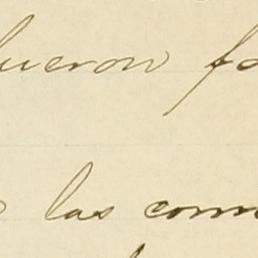 fueron fa
las com